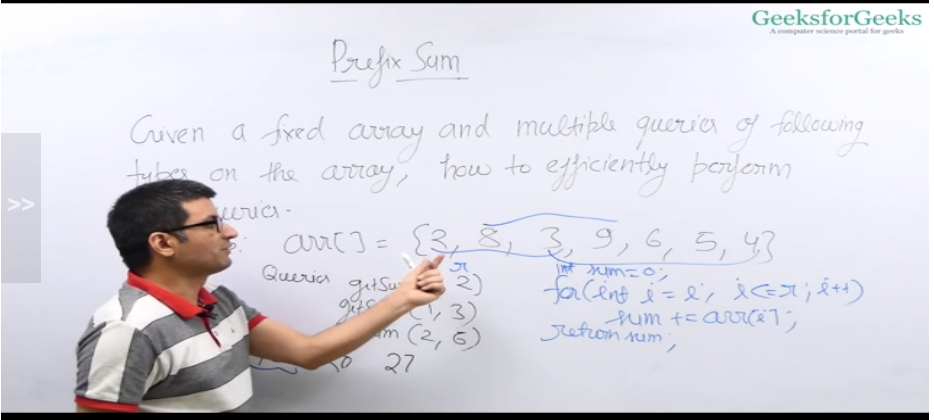 GeeksforGeeks
A computer science portal for geeks
Prefix Sum
Given a fixed array and multiple queries of following
types on the array, how to efficiently perform
arr[] = {3, 8, 3, 9, 6, 5, 4}
Queries
2)
(1, 3)
(2, 6)
27
r
int sum=0;
for(int i = l; i<=r; i++)
sum += arr[i];
return sum;